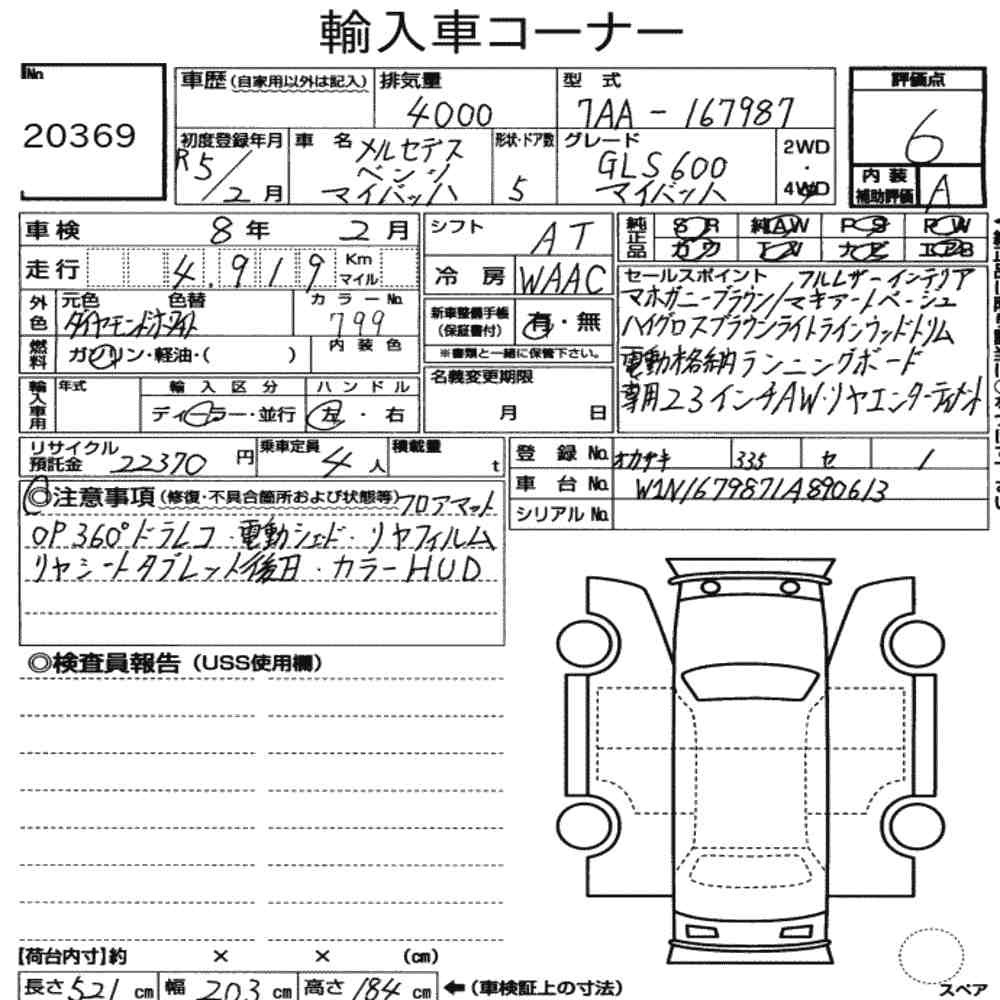 輸入車コーナー
No.
20369
車歴 (自家用以外は記入)
排気量
4000
型 式
7AA - 167987
評価点
6
初度登録年月
R5/2月
車 名
メルセデス
ベンツ
マイバッハ
形状・ドア数
5
グレード
GLS600
マイバッハ
2WD
・
4WD
内 装
補助評価
A
車検 8年 2月
走行 4,919 Km
マイル
シフト AT
冷 房 WAAC
純正品 SR 純AW PS PW
カワ TV ナビ エアB
外色
元色 色替
ダイヤモンドホワイト
カラーNo.
799
燃料
ガソリン・軽油・( )
内 装 色
新車整備手帳
(保証書付)
有・無
※書類と一緒に保管下さい。
セールスポイント フルレザーインテリア
マホガニーブラウン/マキアートベージュ
ハイグロスブラウンライトラインウッドトリム
電動格納ランニングボード
専用23インチAW・リヤエンターテイメント
輸入車用
年式
輸 入 区 分
ディーラー・並行
ハ ン ド ル
左 ・ 右
名義変更期限
月 日
リサイクル
預託金 22370 円
乗車定員
4人
積載量
t
登 録 No. オカザキ 335 セ 1
車 台 No. W1N1679871A890613
シリアル No.
◎注意事項(修復・不具合箇所および状態等)フロアマット
OP 360°ドラレコ・電動シェード・リヤフィルム
リヤシートタブレット後日・カラーHUD
◎検査員報告(USS使用欄)
【荷台内寸】約 × × (cm)
長さ 521 cm 幅 203 cm 高さ 184 cm ←(車検証上の寸法)
スペア